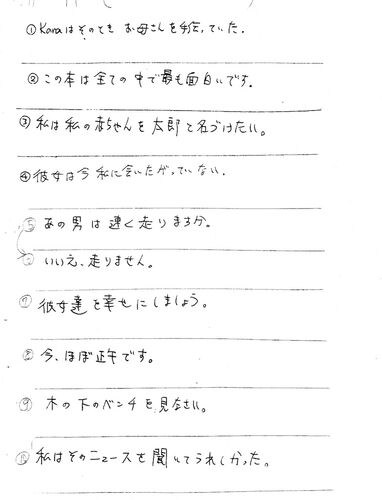 ① Karaはそのとき お母さんを手伝っていた.
② この本は全ての中で最も面白いです.
③ 私は私の赤ちゃんを太郎と名づけたい。
④ 彼女は今 私に会いたがっていない.
⑤ あの男は速く走りますか。
⑥ いいえ、走りません。
⑦ 彼女達を幸せにしましょう。
⑧ 今、ほぼ正午です。
⑨ 木の下のベンチを見なさい。
⑩ 私はそのニュースを聞いてうれしかった。